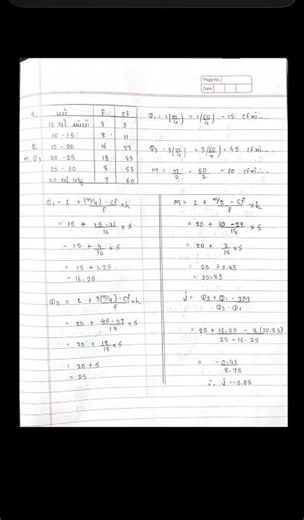 Page No.
Date
4. વર્ગ f cf
10 - 15 8 11
Q₁ 15 - 20 16 27
M, Q₃ 20 - 25 18 45
25 - 30 8 53
7 60
Q₁ = 1(n/4) = 1(60/4) = 15
Q₃ = 3(n/4) = 3(60/4) = 45
M = n/2 = 60/2 = 30
Q₁ = L + (n/4) - cf / f × h
= 15 + 15-11/16 × 5
= 15 + 4/16 × 5
= 15 + 1.25
= 16.25
Q₃ = L + 3(n/4) - cf / f × h
= 20 + 45-27/18 × 5
= 20 + 18/18 × 5
= 20 + 5
= 25
M = L + n/2 - cf / f × h
= 20 + 30-27/18 × 5
= 20 + 3/18 × 5
= 20 + 0.83
= 20.83
j = Q₃ + Q₁ - 2M / Q₃ - Q₁
= 25 + 16.25 - 2(20.83) / 25 - 16.25
= -0.41 / 8.75
∴ j = -0.05